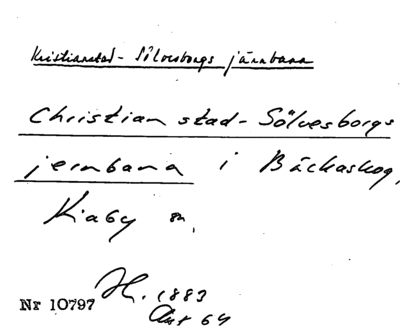 Kristianstad - Sölvesborgs järnbana
Christianstad - Sölvesborgs
jernbana i Bäckaskog,
Kiaby sn.
Nr 10797 H. 1883
Ant 64